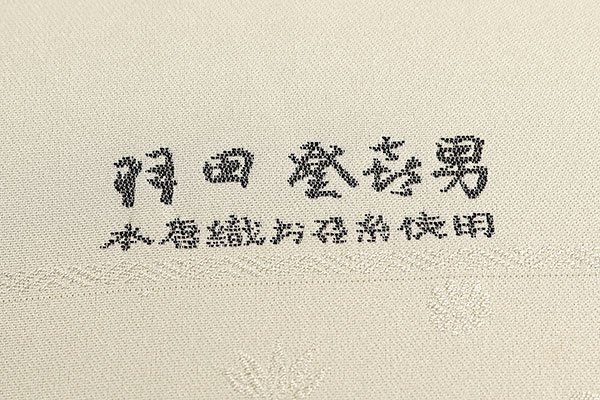 羽田登喜男
本唐織お召糸使用